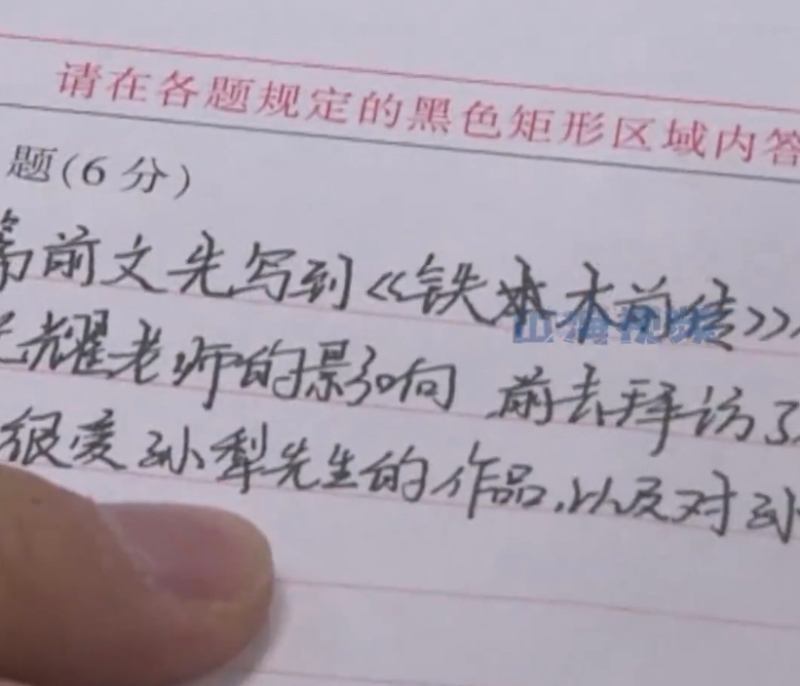 请在各题规定的黑色矩形区域内答
题(6分)
前文先写到《铁木前传》
光耀老师的影响 前去拜访了
很爱孙犁先生的作品,以及对孙
山海视频